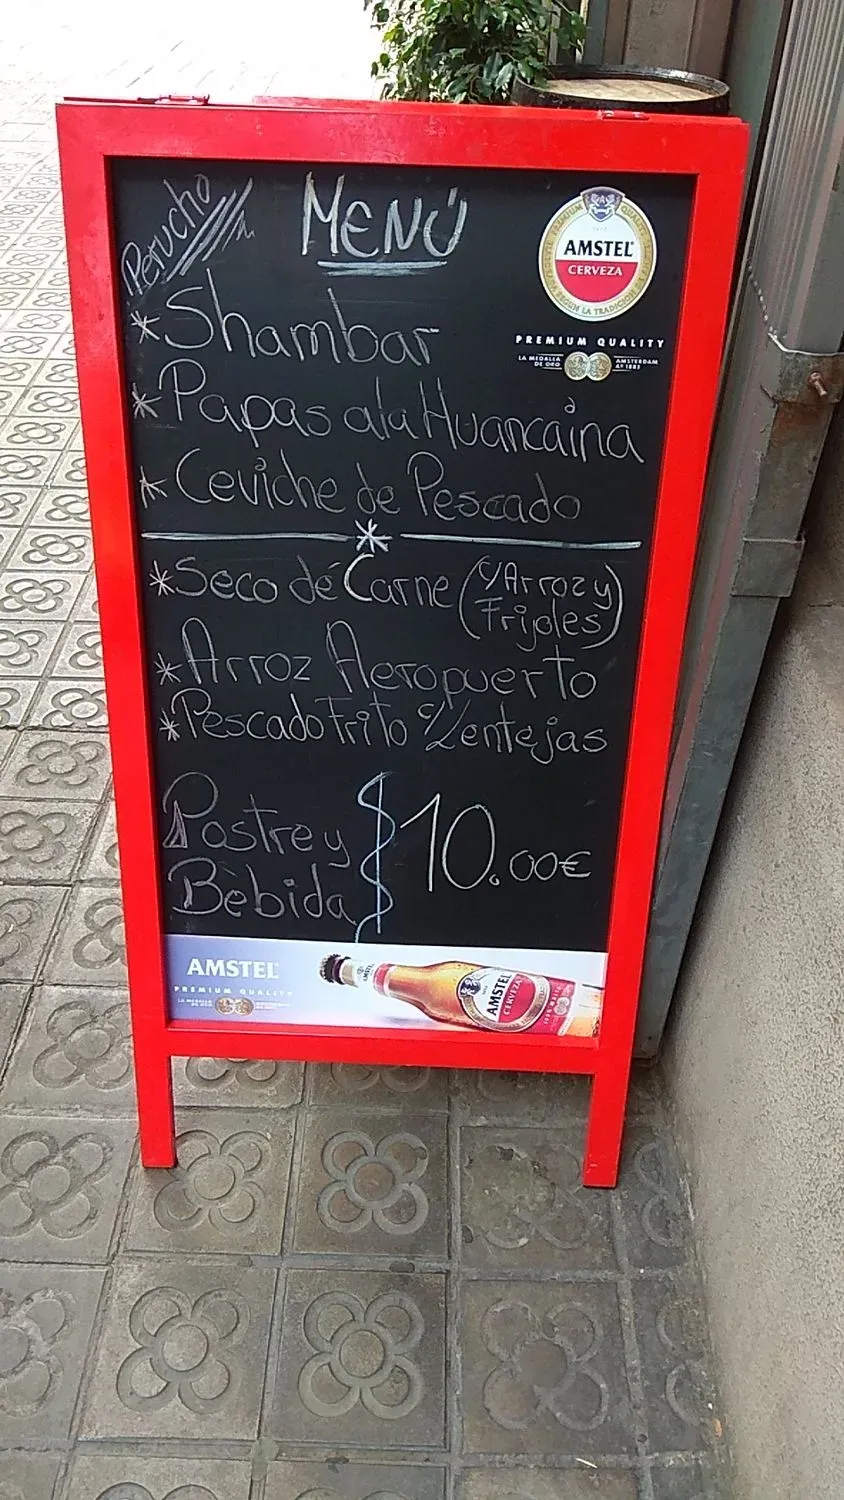 Perucho
MENÚ
PREMIUM QUALITY
SEGÚN LA TRADICIÓN
AMSTEL
CERVEZA
PREMIUM QUALITY
LA MEDALLA DE ORO
AMSTERDAM Aº 1883
*Shambar
*Papas a la Huancaína
*Ceviche de Pescado
*
*Seco de Carne (c/Arroz y
Frijoles)
*Arroz Aeropuerto
*Pescado Frito c/Lentejas
Postre y
Bebida
10.00€
AMSTEL
PREMIUM QUALITY
AMSTEL
AMSTEL
CERVEZA